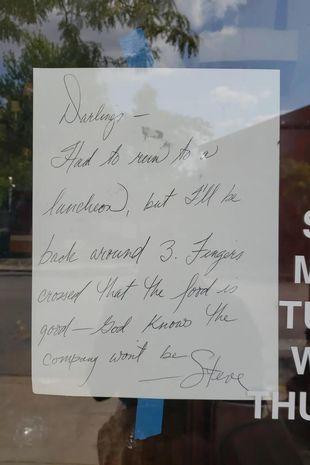 Darlings —
Had to run to a
luncheon, but I'll be
back around 3. Fingers
crossed that the food is
good — God knows the
company won't be
— Steve
S
M
TU
W
THU